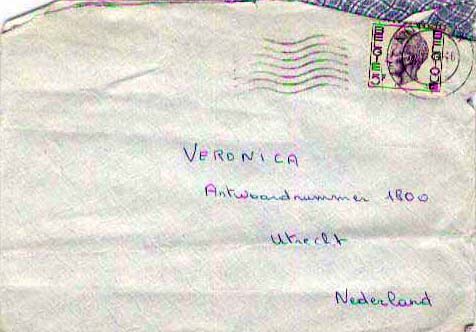 BELGIQUE
BELGIE 3F
VERONICA
Antwoordnummer 1800
Utrecht
Nederland